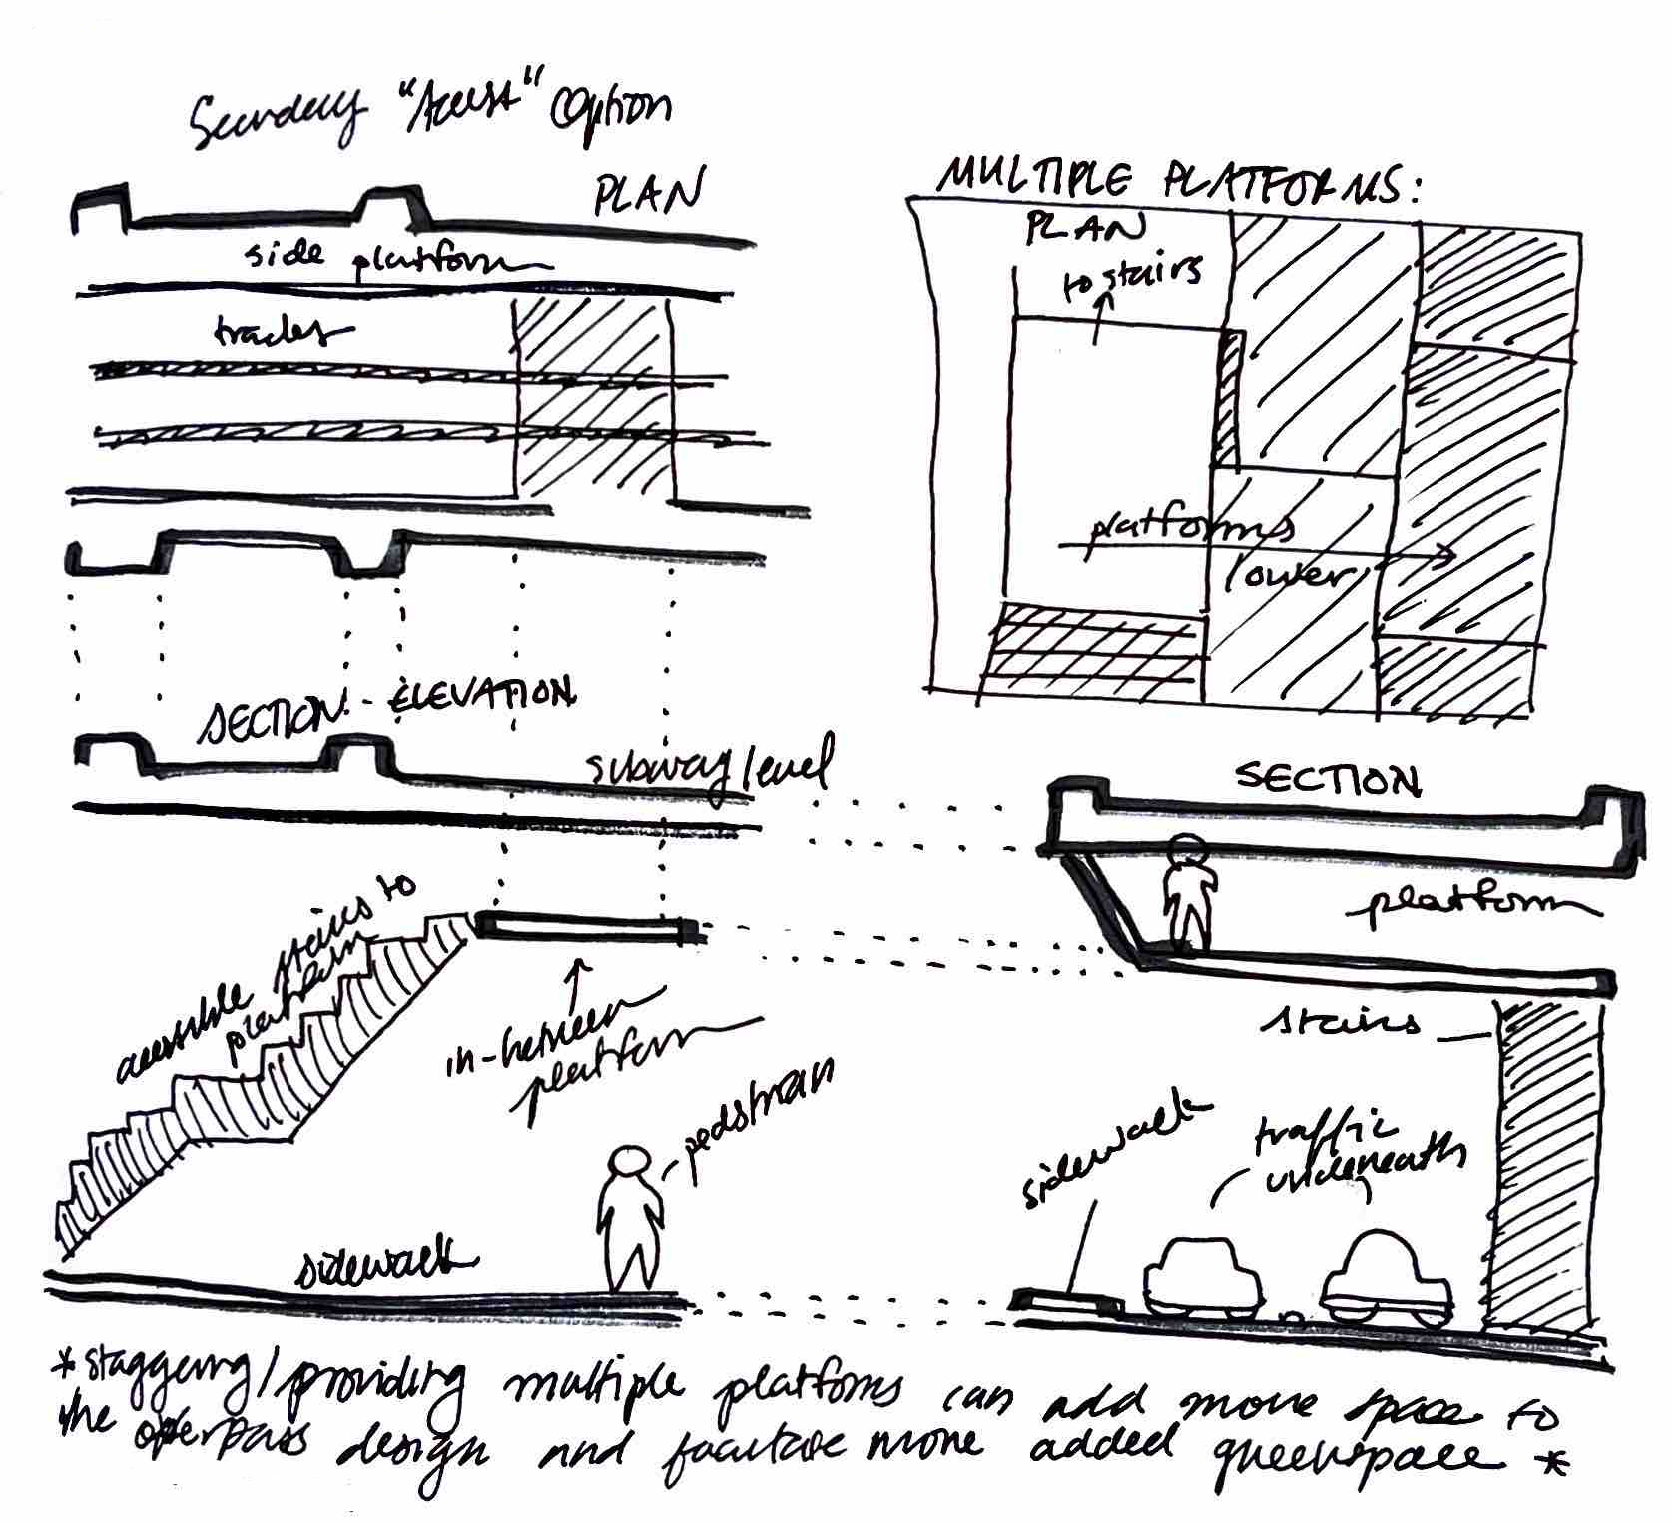 Secondary "Access" Option
PLAN
side platform
tracks
SECTION - ELEVATION
subway level
accessible stairs to
platform
in-between
platform
pedstrian
sidewalk
MULTIPLE PLATFORMS:
PLAN
to stairs
platforms
lower
SECTION
platform
stairs
sidewalk
traffic
underneath
*staggering/providing multiple platforms can add more space to
the overpass design and facilitate more added greenspace *